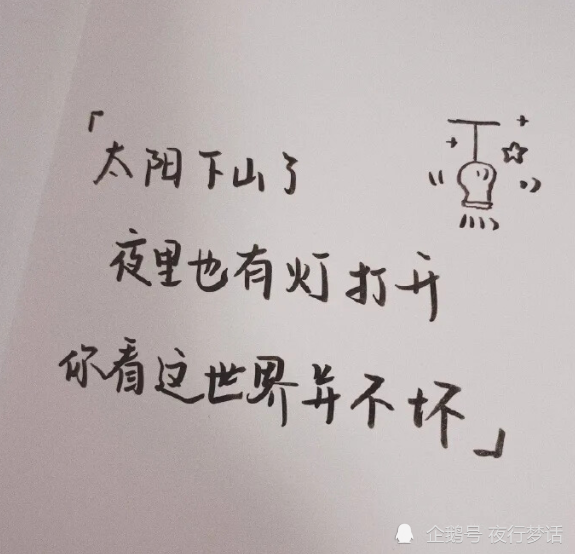 「太阳下山了
夜里也有灯打开
你看这世界并不坏」
企鹅号 夜行梦话